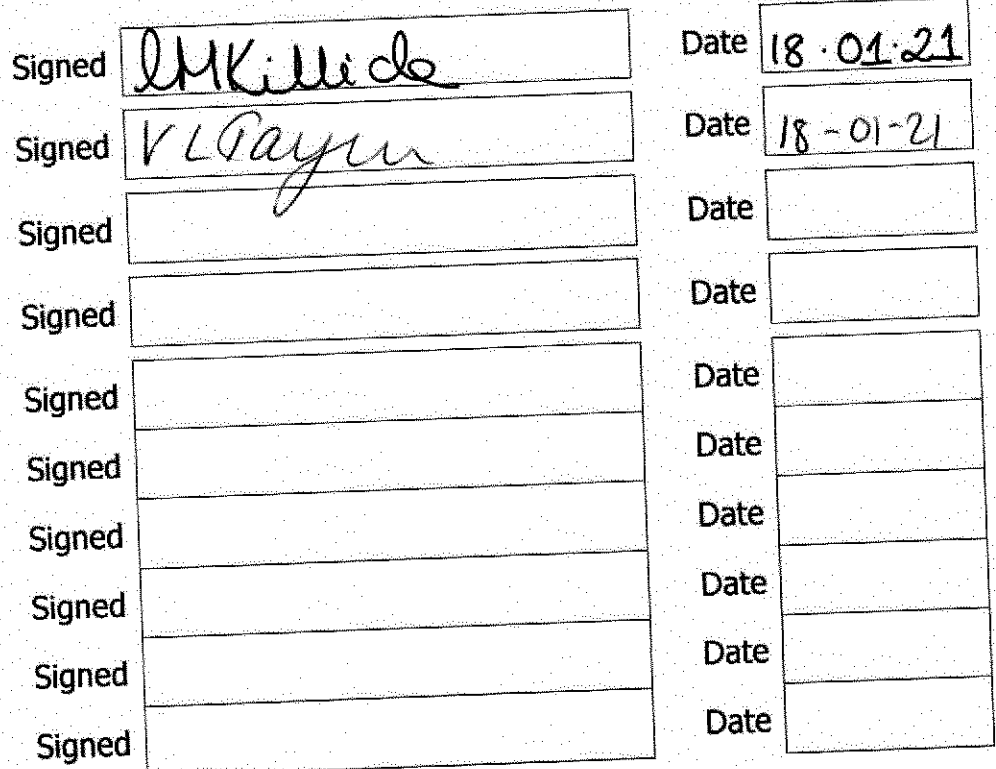 Signed LMKillick Date 18.01.21
Signed V L Date 18-01-21
Signed Date
Signed Date
Signed Date
Signed Date
Signed Date
Signed Date
Signed Date
Signed Date